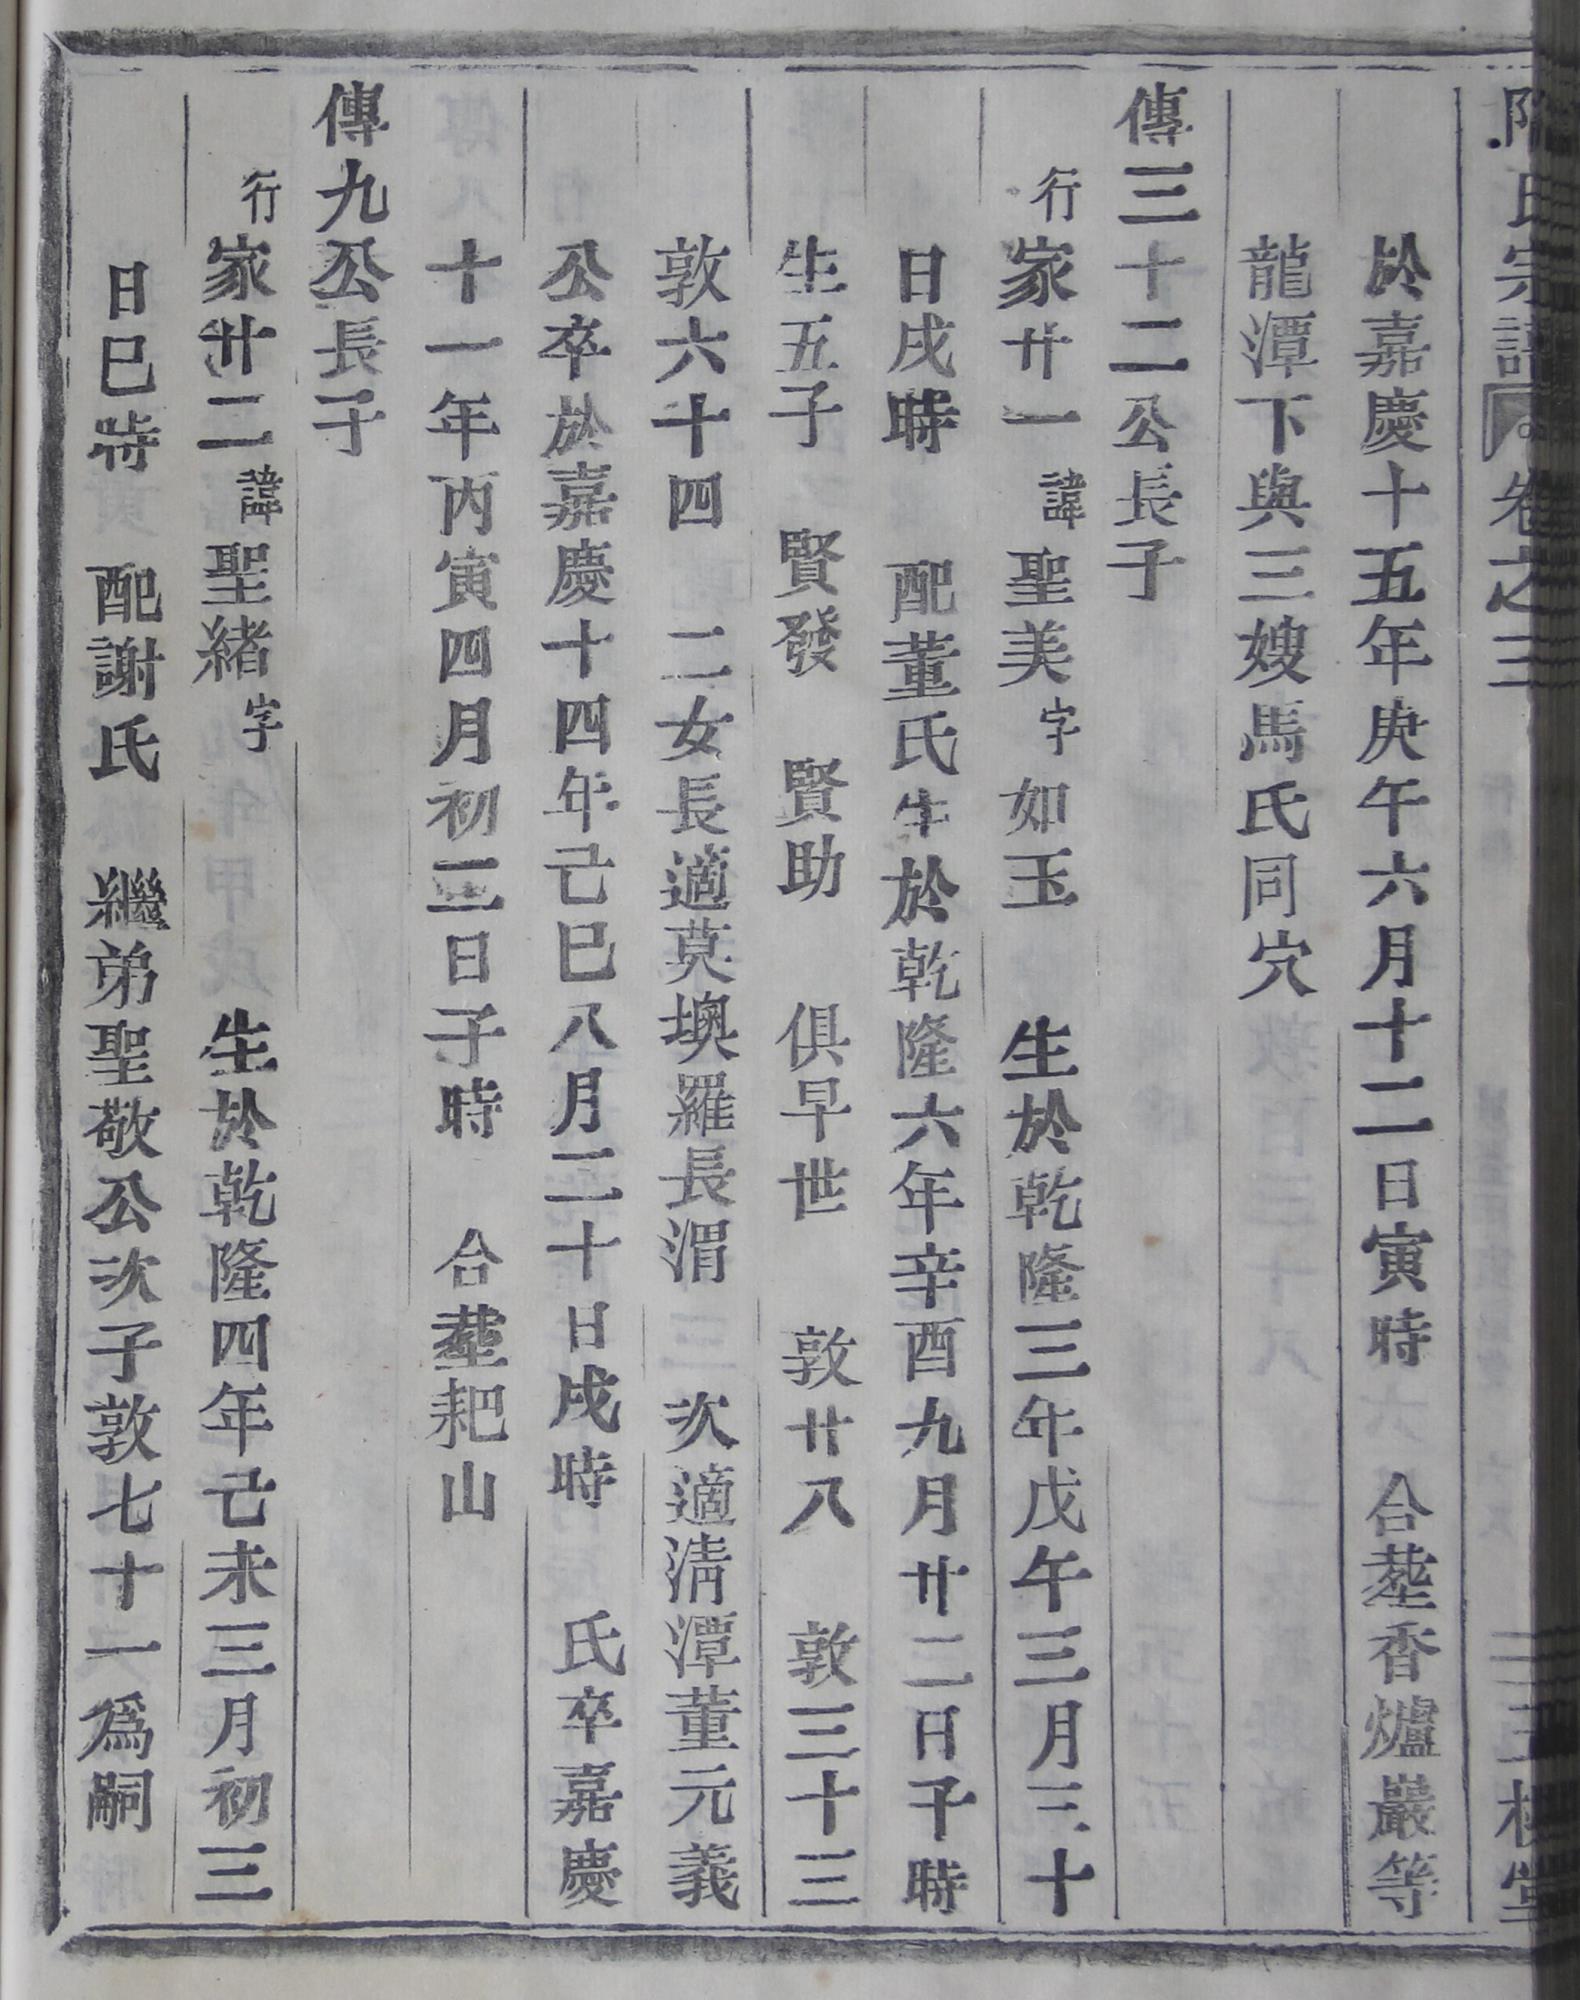 氏宗譜 卷之三 三
於嘉慶十五年庚午六月十二日寅時 合塟香爐巖等
龍潭下與三嫂馬氏同穴
傳三十二公長子
行家廿一諱聖美字如玉 生於乾隆三年戊午三月三十
日戌時 配董氏生於乾隆六年辛酉九月廿二日子時
生五子 賢發 賢助 俱早世 敦廿八 敦三十三
敦六十四 二女長適莫墺羅長渭 次適清潭董元義
公卒於嘉慶十四年己巳八月二十日戌時 氏卒嘉慶
十一年丙寅四月初三日子時 合塟耙山
傳九公長子
行家廿二諱聖緒字 生於乾隆四年己未三月初三
日巳時 配謝氏 繼弟聖敬公次子敦七十一爲嗣